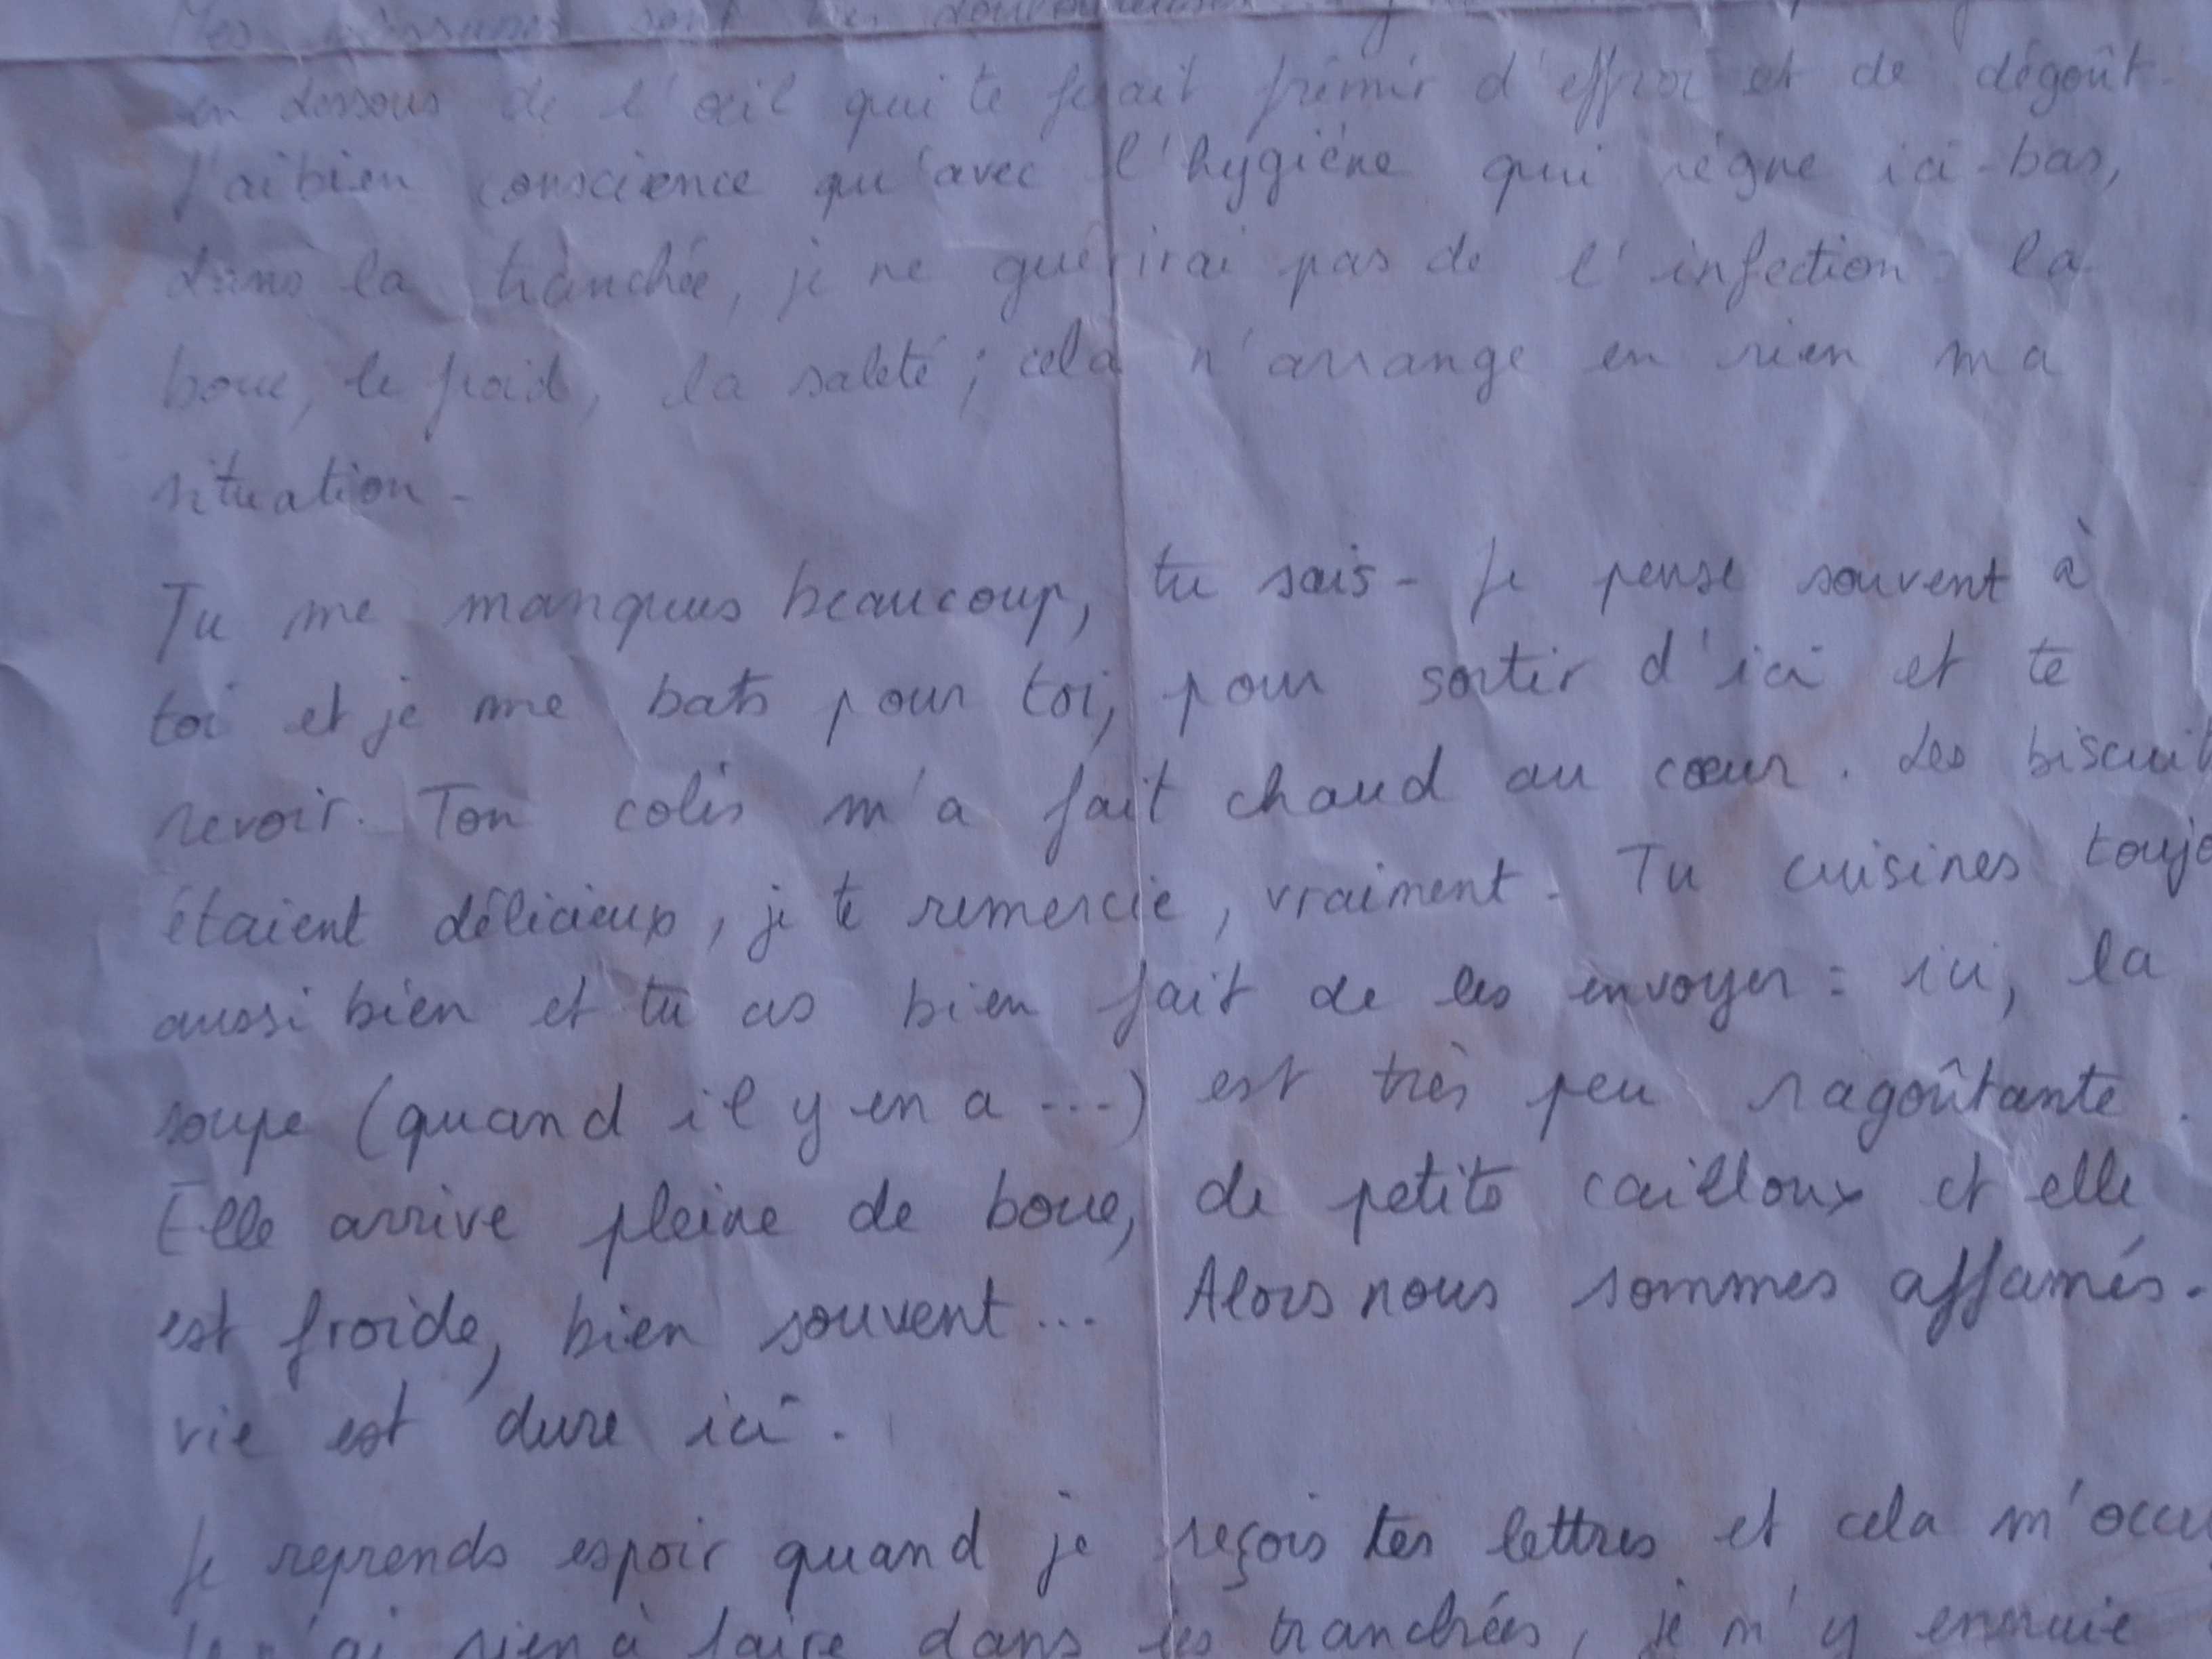 Mes blessures sont très douloureuses
en dessous de l'œil qui te ferait frémir d'effroi et de dégoût.
J'ai bien conscience qu'avec l'hygiène qui règne ici-bas,
dans la tranchée, je ne guérirai pas de l'infection : la
boue, le froid, la saleté ; cela n'arrange en rien ma
situation.
Tu me manques beaucoup, tu sais. Je pense souvent à
toi et je me bats pour toi, pour sortir d'ici et te
revoir. Ton colis m'a fait chaud au cœur. Les biscuit
étaient délicieux, je te remercie, vraiment. Tu cuisines toujo
aussi bien et tu as bien fait de les envoyer : ici, la
soupe (quand il y en a ...) est très peu ragoûtante.
Elle arrive pleine de boue, de petits cailloux et elle
est froide, bien souvent... Alors nous sommes affamés.
vie est dure ici.
Je reprends espoir quand je reçois tes lettres et cela m'occu
Je n'ai rien à faire dans les tranchées, je m'y ennuie